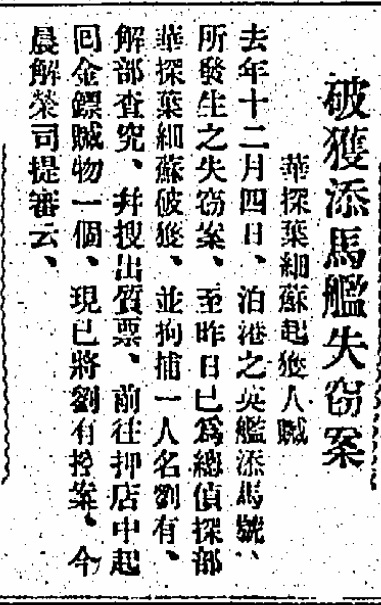 破獲添馬艦失窃案
華探葉細蘇起獲人贓
去年十二月四日、泊港之英艦添馬號、
所發生之失窃案、至昨日已爲總偵探部
華探葉細蘇破獲、並拘捕一人名劉有、
解部查究、幷搜出質票、前往押店中起
囘金鏢贓物一個、現已將劉有控案、今
晨解榮司提審云、